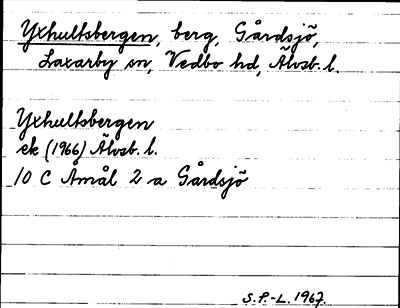 Yxhultsbergen, berg, Gårdsjö,
Laxarby sn, Vedbo hd, Älvsb. l.
Yxhultsbergen
ek (1966) Älvsb. l.
10 C Åmål 2 a Gårdsjö
S.P.-L. 1967.